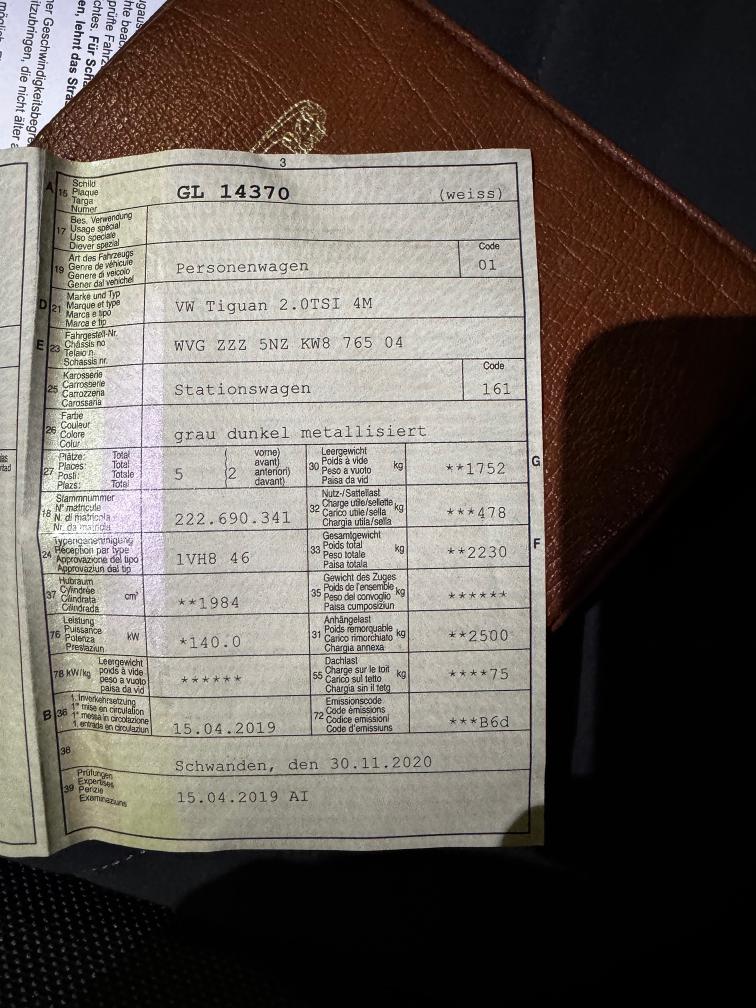 3
A 15 Schild
Plaque
Targa
Numer
GL 14370 (weiss)
17 Bes. Verwendung
Usage spécial
Uso speciale
Diever spezial
19 Art des Fahrzeugs
Genre de véhicule
Genere di veicolo
Gener dal vehichel
Personenwagen
Code
01
D 21 Marke und Typ
Marque et type
Marca e tipo
Marca e tip
VW Tiguan 2.0TSI 4M
E 23 Fahrgestell-Nr.
Châssis no
Telaio n.
Schassis nr.
WVG ZZZ 5NZ KW8 765 04
25 Karosserie
Carrosserie
Carrozzeria
Carossaria
Stationswagen
Code
161
26 Farbe
Couleur
Colore
Colur
grau dunkel metallisiert
27 Plätze: Total
Places: Total
Posti: Totale
Plazs: Total
5 (2 vorne)
avant)
anteriori)
davant)
30 Leergewicht
Poids à vide
Peso a vuoto
Paisa da vid
kg
**1752
G
18 Stammnummer
N° matricule
N. di matricola
Nr. da matricla
222.690.341
32 Nutz-/Sattellast
Charge utile/sellette
Carico utile/sella
Chargia utila/sella
kg
***478
24 Typengenehmigung
Réception par type
Approvazione del tipo
Approvaziun dal tip
1VH8 46
33 Gesamtgewicht
Poids total
Peso totale
Paisa totala
kg
**2230
F
37 Hubraum
Cylindrée
Cilindrata
Cilindrada
cm³
**1984
35 Gewicht des Zuges
Poids de l'ensemble
Peso del convoglio
Paisa cumposiziun
kg
******
76 Leistung
Puissance
Potenza
Prestaziun
kW
*140.0
31 Anhängelast
Poids remorquable
Carico rimorchiato
Chargia annexa
kg
**2500
78 kW/kg Leergewicht
poids à vide
peso a vuoto
paisa da vid
******
55 Dachlast
Charge sur le toit
Carico sul tetto
Chargia sin il tetg
kg
****75
B 36 1. Inverkehrsetzung
1re mise en circulation
1a messa in circolazione
1. entrada en circulaziun
15.04.2019
72 Emissionscode
Code émissions
Codice emissioni
Code d'emissiuns
***B6d
38
Schwanden, den 30.11.2020
39 Prüfungen
Expertises
Perizie
Examinaziuns
15.04.2019 AI